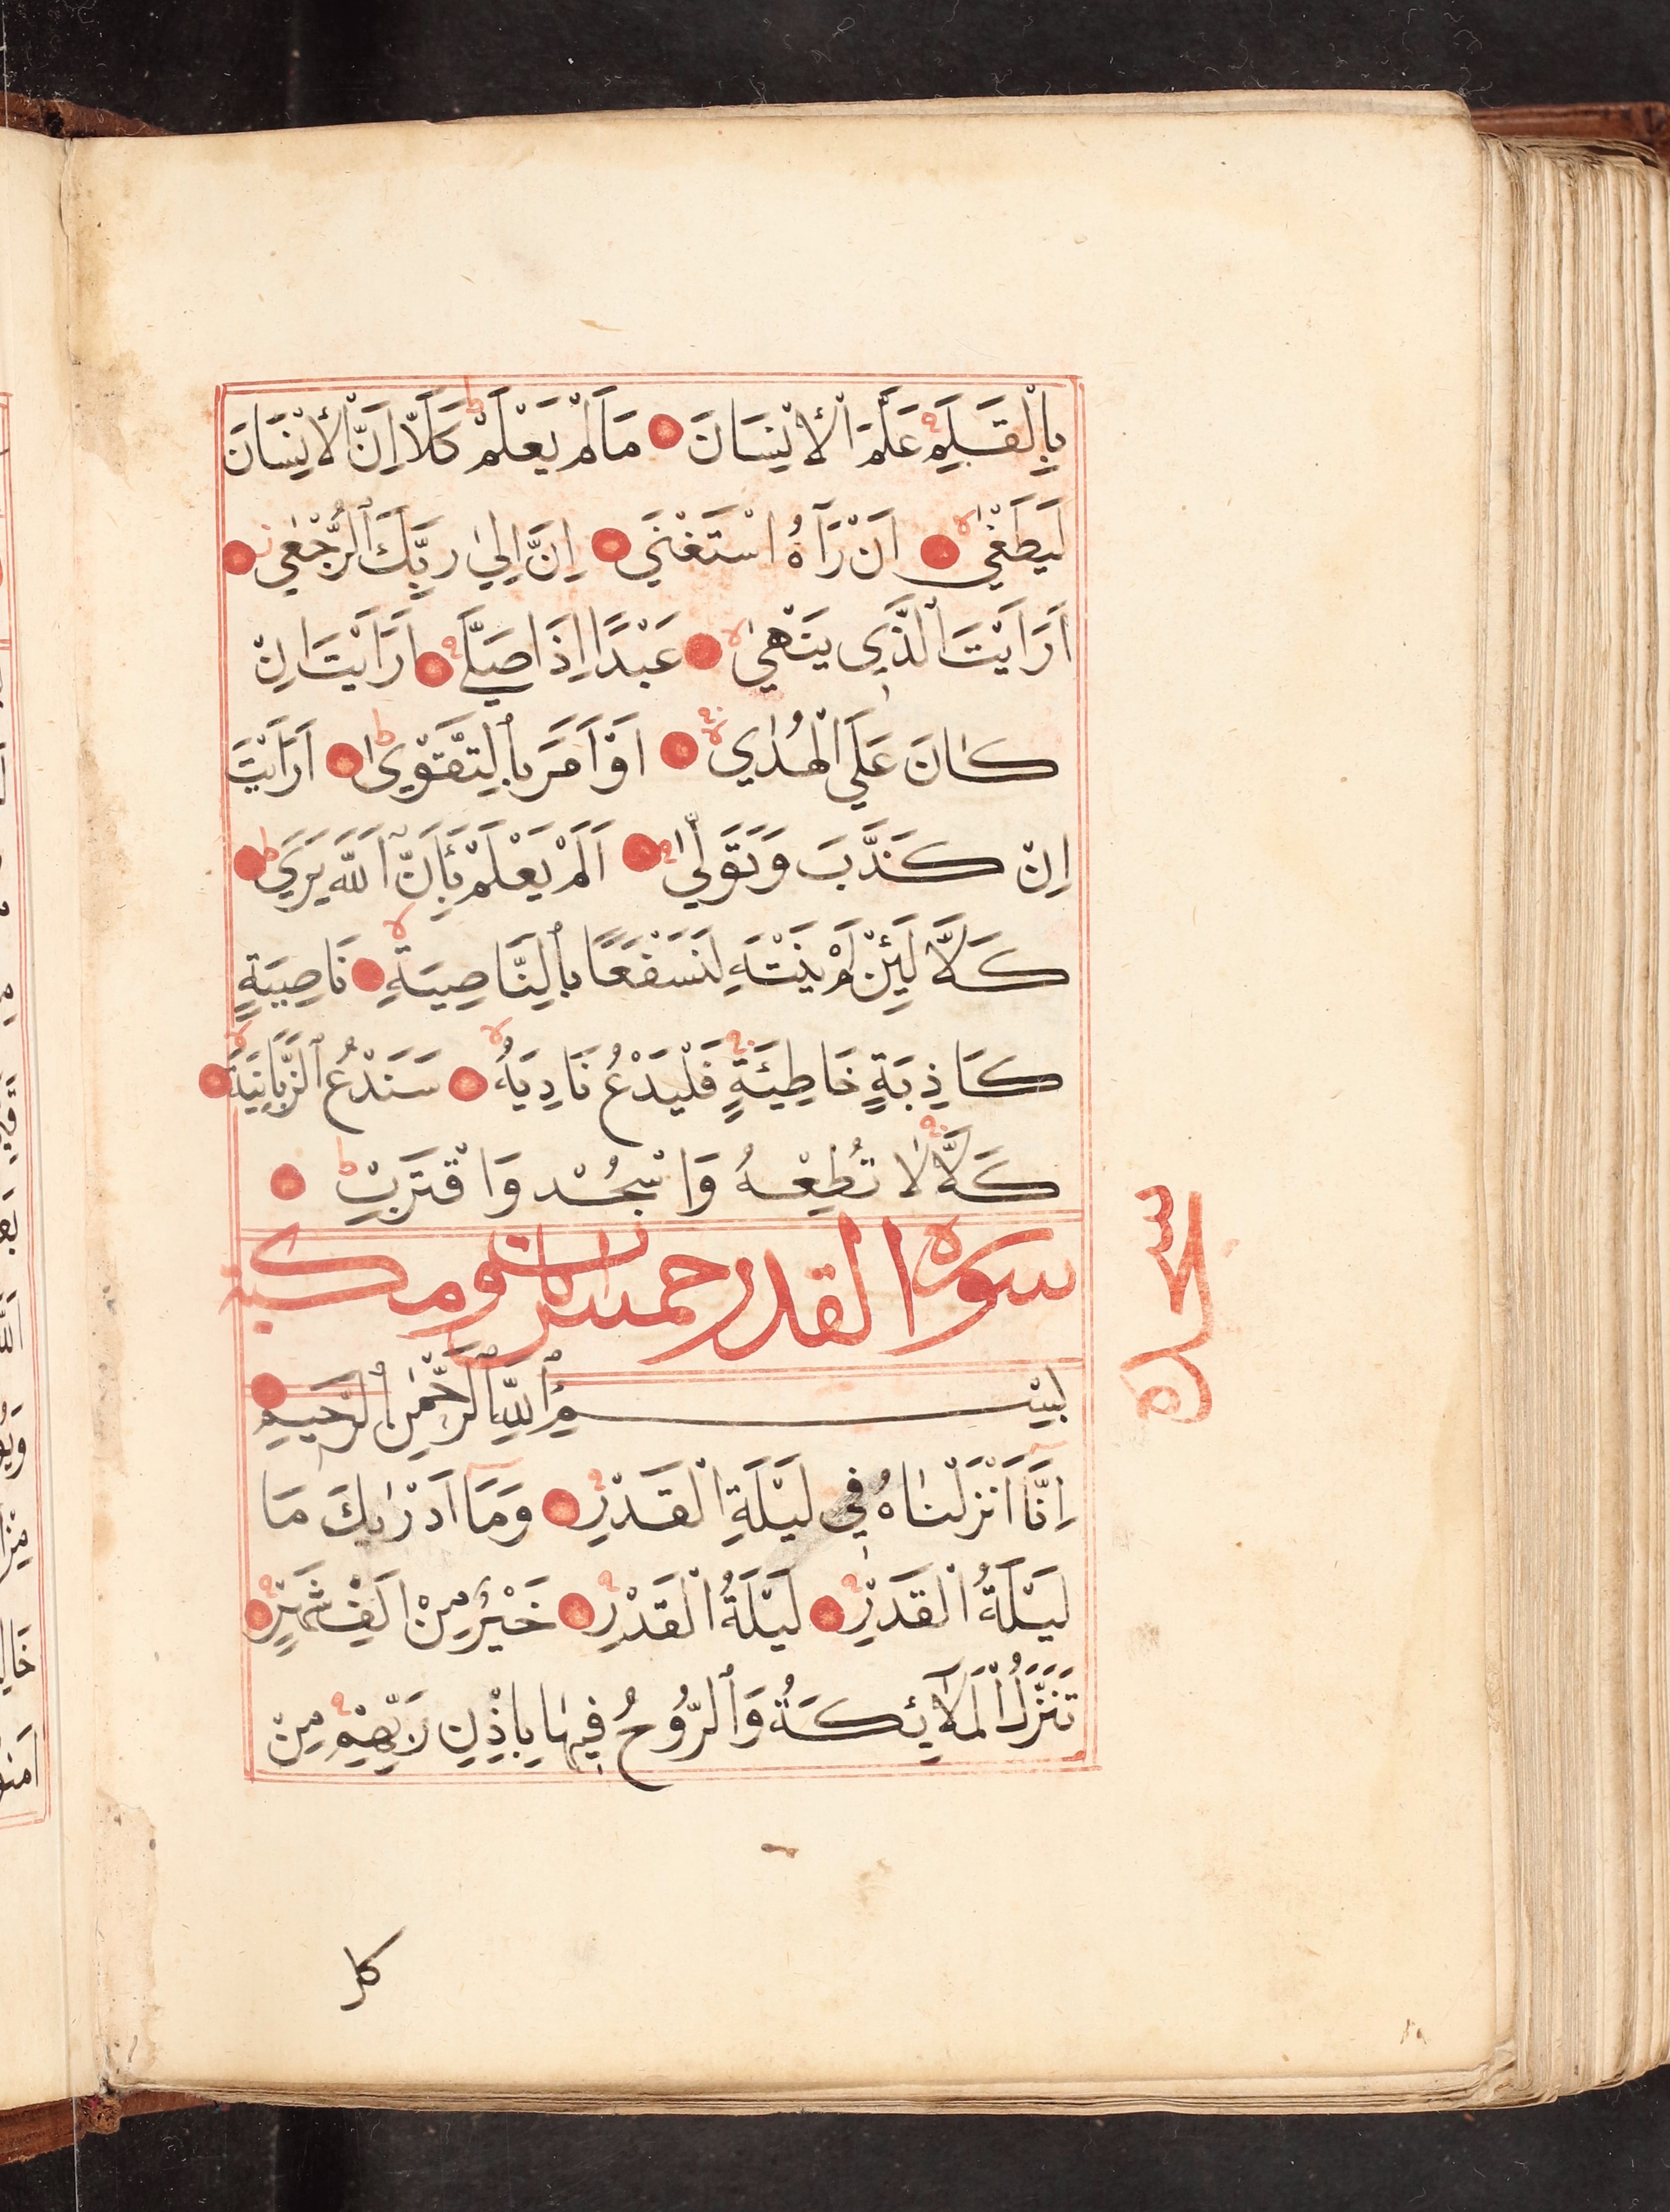 بِالْقَلَمِ عَلَّمَ الْأِنْسَانَ مَا لَمْ يَعْلَمْ كَلَّا اِنَّ الْأِنْسَانَ
لَيَطْغٰي اَنْ رَآهُ اسْتَغْنَي اِنَّ اِلٰي رَبِّكَ الرُّجْعٰي
اَرَاَيْتَ الَّذِي يَنْهٰي عَبْدًا اِذَا صَلَّي اَرَاَيْتَ اِنْ
كَانَ عَلَي الْهُدٰي اَوْ اَمَرَ بِالتَّقْوٰي اَرَاَيْتَ
اِنْ كَذَّبَ وَتَوَلّٰي اَلَمْ يَعْلَمْ بِأَنَّ اللّٰهَ يَرَي
كَلَّا لَئِنْ لَمْ يَنْتَهِ لَنَسْفَعًا بِالنَّاصِيَةِ نَاصِيَةٍ
كَاذِبَةٍ خَاطِئَةٍ فَلْيَدْعُ نَادِيَهُ سَنَدْعُ الزَّبَانِيَةَ
كَلَّا لَا تُطِعْهُ وَاسْجُدْ وَاقْتَرِبْ
سجده
سورة القدر خمس ايات وهو مكية
بِسْمِ اللّٰهِ الرَّحْمٰنِ الرَّحِيمِ
اِنَّا اَنْزَلْنَاهُ فِي لَيْلَةِ الْقَدْرِ وَمَا اَدْرٰيكَ مَا
لَيْلَةُ الْقَدْرِ لَيْلَةُ الْقَدْرِ خَيْرٌ مِنْ اَلْفِ شَهْرٍ
تَنَزَّلُ الْمَلَآئِكَةُ وَالرُّوحُ فِيهَا بِاِذْنِ رَبِّهِمْ مِنْ
كل